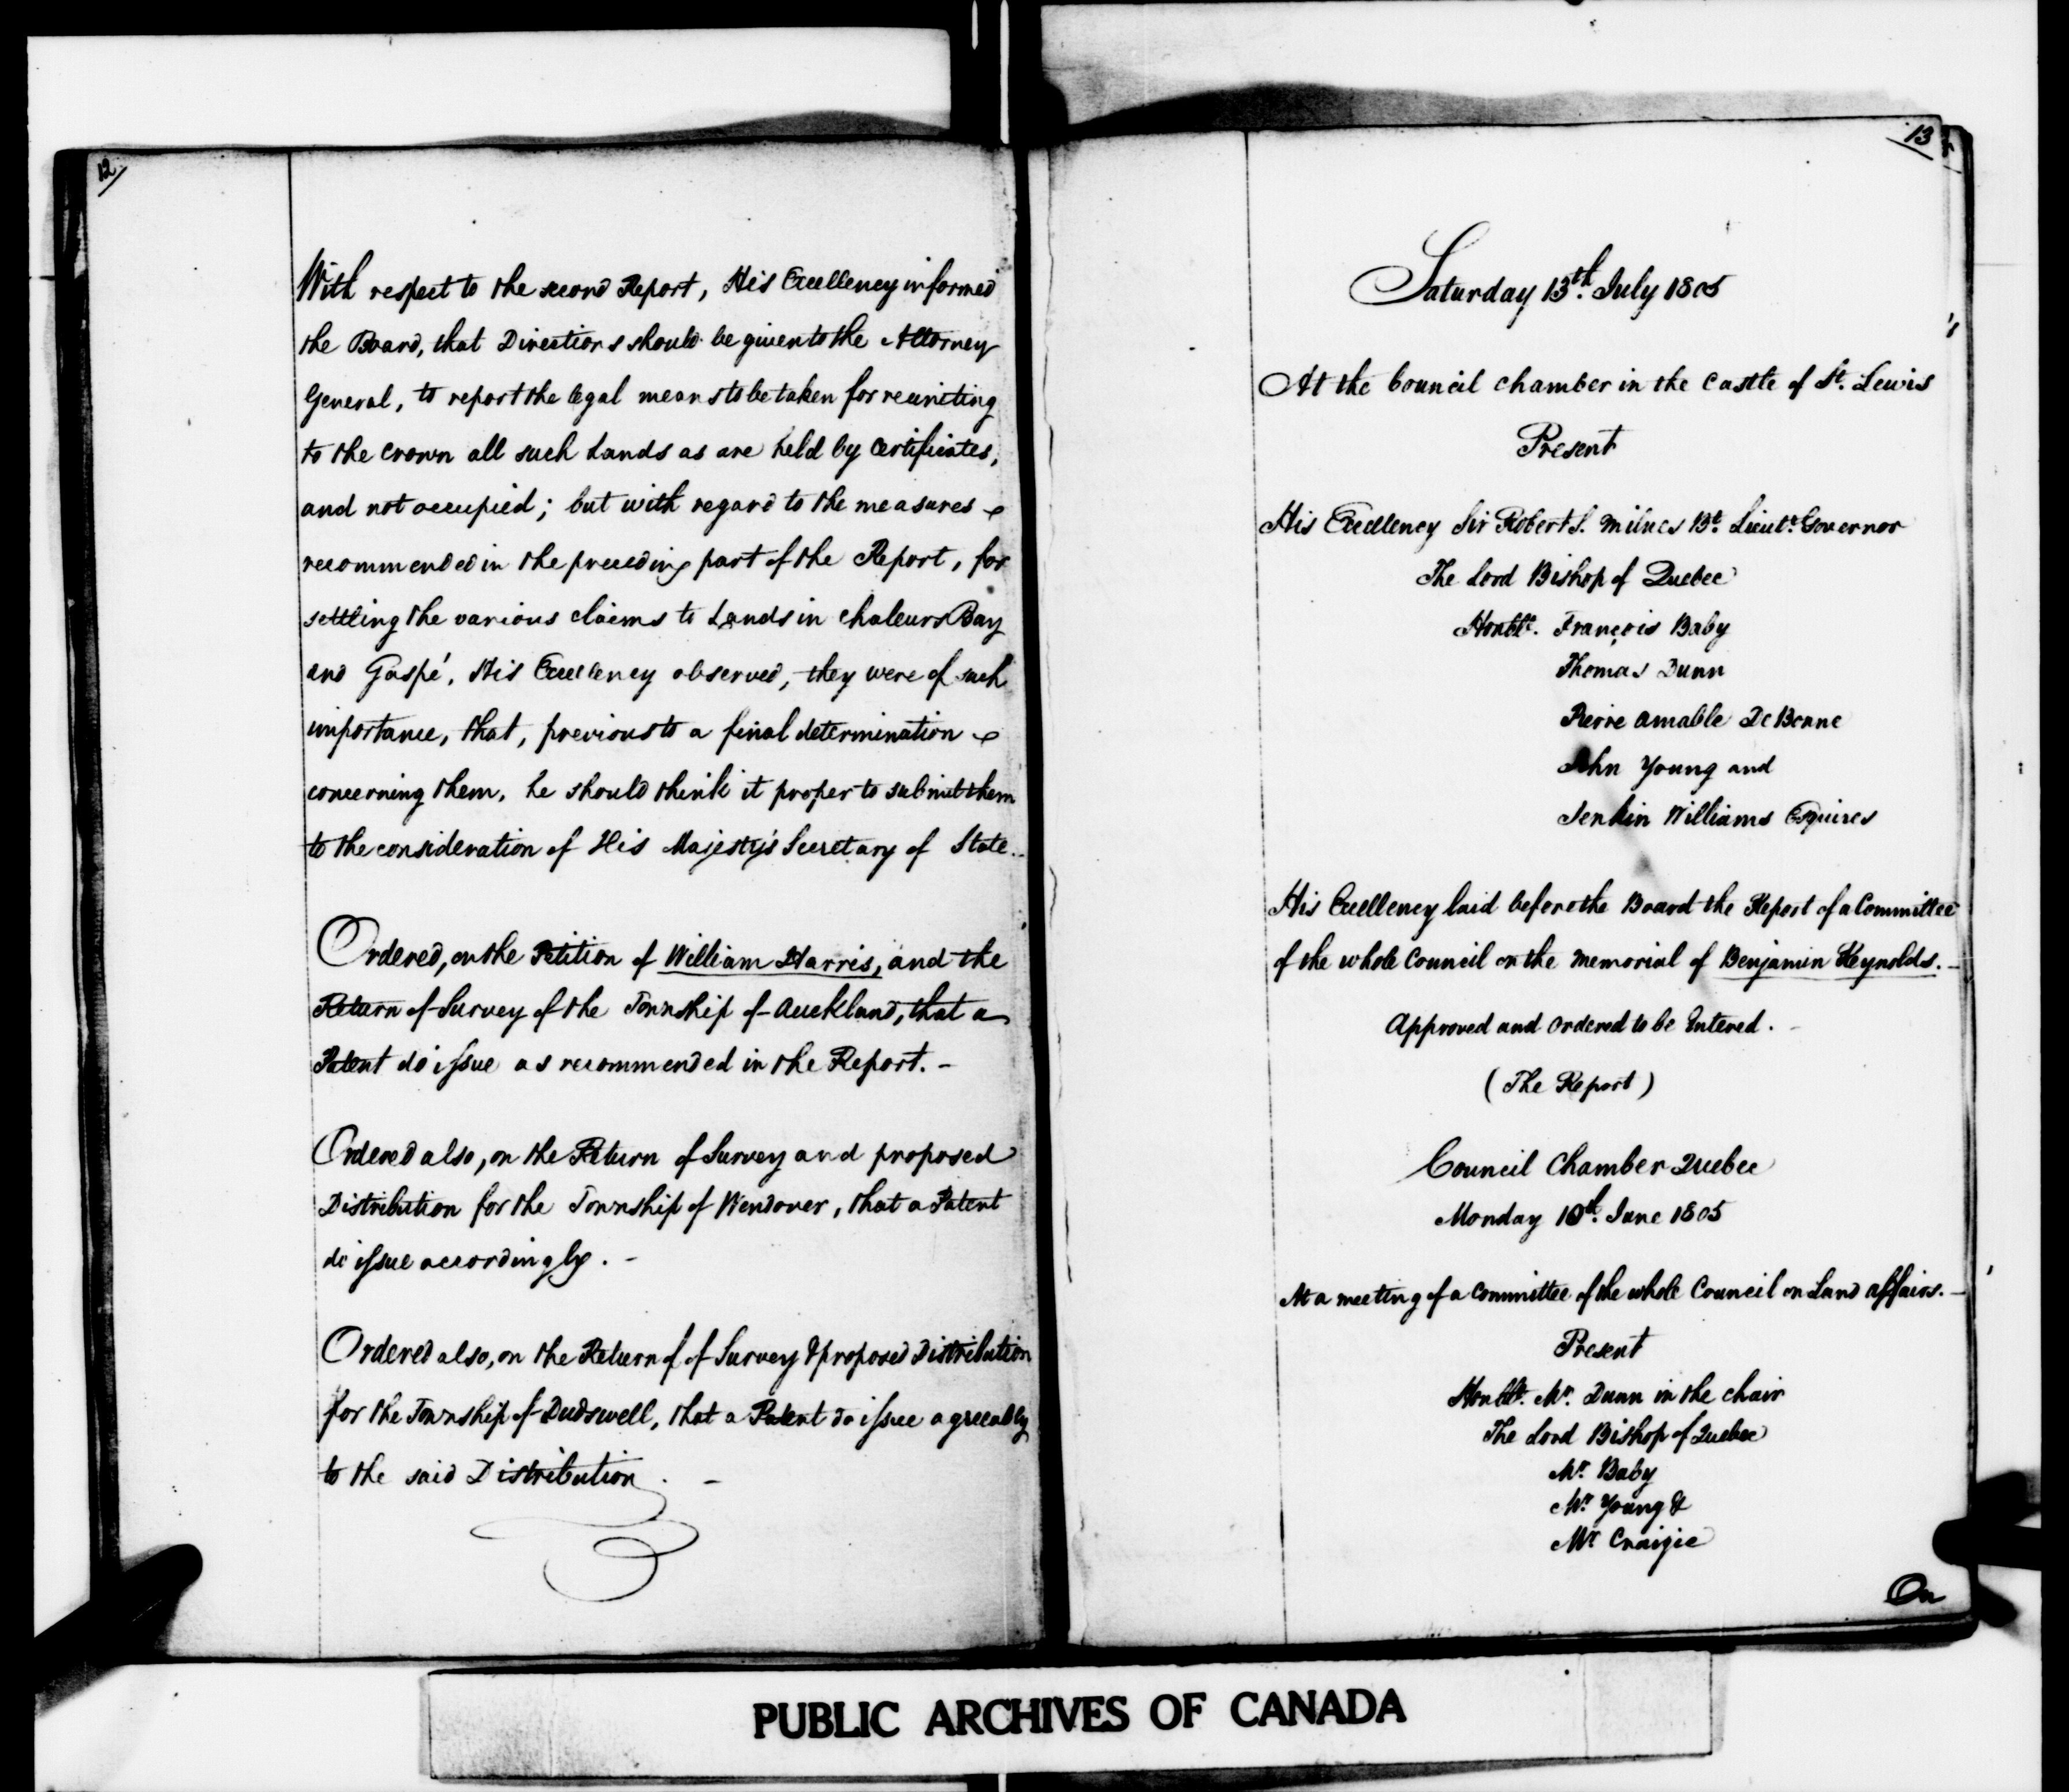 12
With respect to the second Report, His Excellency informed
the Board, that Directions should be given to the Attorney
General, to report the legal means to be taken for reuniting
to the crown all such Lands as are held by Certificates,
and not occupied; but with regard to the measures
recommended in the preceding part of the Report, for
settling the various claims to Lands in Chaleurs Bay
and Gaspé, His Excellency observed, they were of such
importance, that, previous to a final determination
concerning them, he should think it proper to submit them
to the consideration of His Majesty's Secretary of State.
Ordered, on the Petition of William Harris, and the
Return of Survey of the Township of Auckland, that a
Patent do issue as recommended in the Report. -
Ordered also, on the Return of Survey and proposed
Distribution for the Township of Wendover, that a Patent
do issue accordingly. -
Ordered also, on the Return of of Survey & proposed Distribution
for the Township of Dudswell, that a Patent do issue agreeably
to the said Distribution. -
13
Saturday 13th. July 1805
At the Council Chamber in the Castle of St. Lewis
Present
His Excellency Sir Robert S. Milnes Bt. Lieutt. Governor
The Lord Bishop of Quebec
Honble. François Baby
Thomas Dunn
Pierre Amable De Bonne
John Young and
Jenkin Williams Esquires
His Excellency laid before the Board the Report of a Committee
of the whole Council on the Memorial of Benjamin Reynolds. -
Approved and ordered to be Entered. -
(The Report)
Council Chamber Quebec
Monday 10th. June 1805
At a meeting of a Committee of the whole Council on Land affairs. -
Present
Honble. Mr. Dunn in the chair
The Lord Bishop of Quebec
Mr. Baby
Mr. Young &
Mr. Craigie
On
PUBLIC ARCHIVES OF CANADA